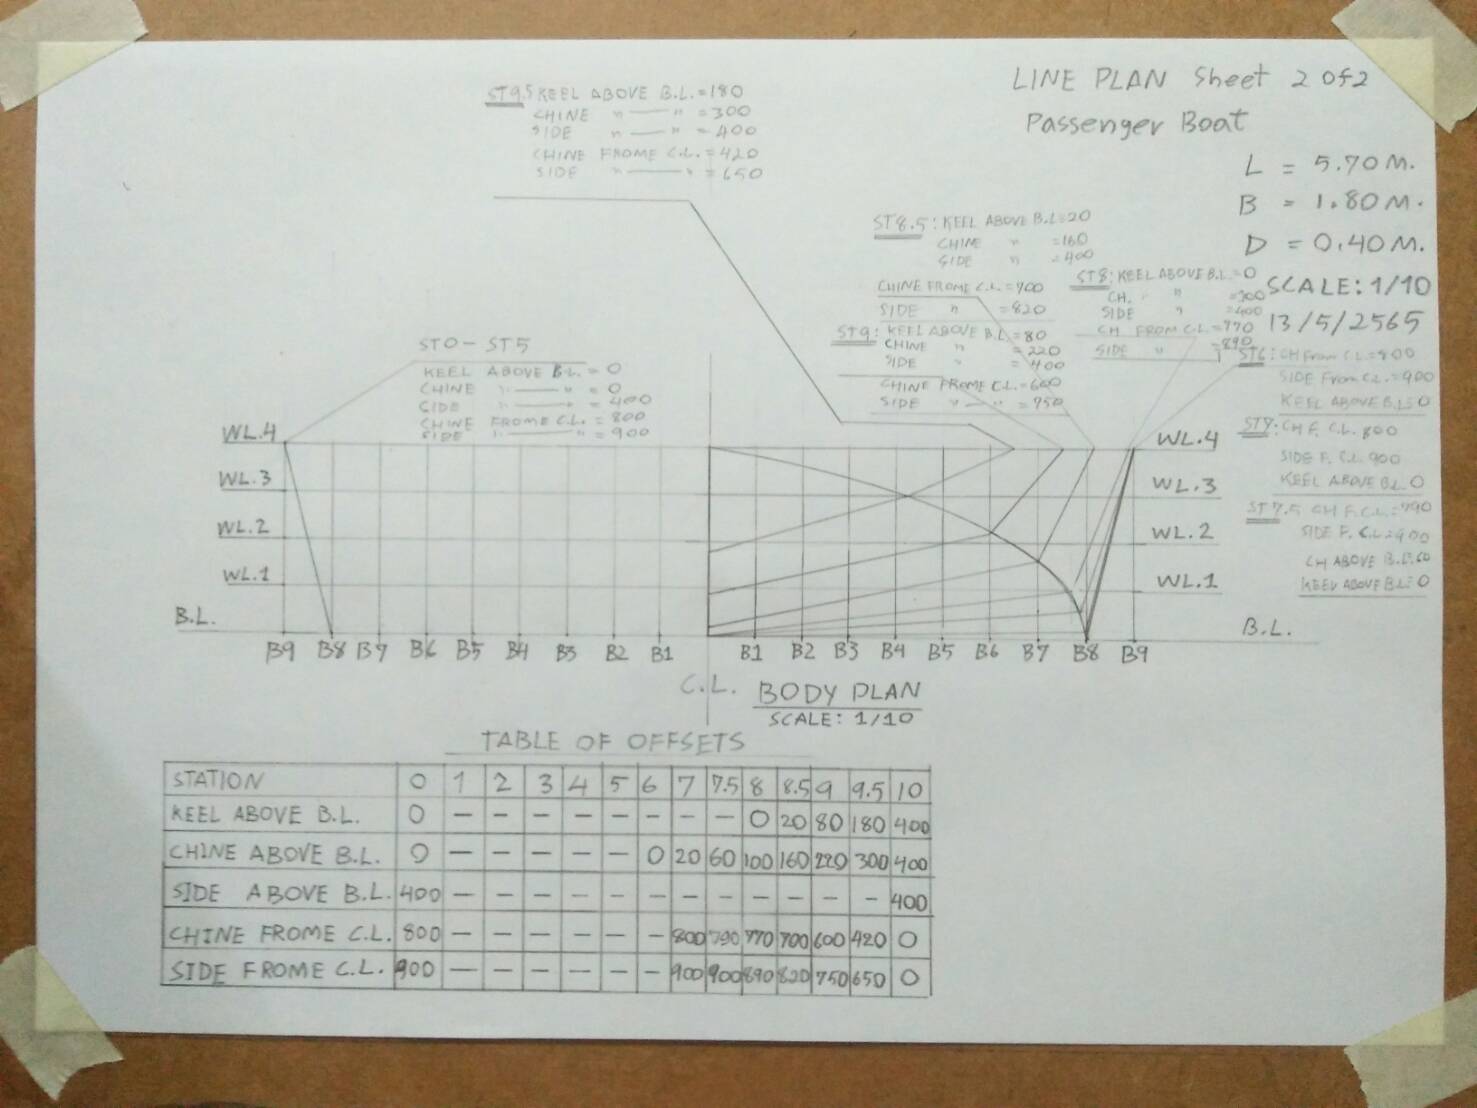 LINE PLAN Sheet 2 of 2
Passenger Boat
L = 5.70 M.
B = 1.80 M.
D = 0.40 M.
SCALE: 1/10
13/5/2565
ST9.5 KEEL ABOVE B.L. = 180
CHINE " — " = 300
SIDE " — " = 400
CHINE FROME C.L. = 420
SIDE " — " = 650
ST8.5: KEEL ABOVE B.L = 20
CHINE " = 160
SIDE " = 400
CHINE FROME C.L. = 700
SIDE " = 820
ST8: KEEL ABOVE B.L = 0
CH. " = 100
SIDE " = 400
CH FROM C.L. = 770
SIDE " = 890
ST9: KEEL ABOVE B.L = 80
CHINE " = 220
SIDE " = 400
CHINE FROME C.L. = 600
SIDE " — " = 750
ST6: CH From C.L. = 800
SIDE From C.L. = 900
KEEL ABOVE B.L = 0
ST7: CH F. C.L. 800
SIDE F. C.L. 900
KEEL ABOVE B.L 0
ST7.5 CH F.C.L. = 790
SIDE F. C.L = 900
CH ABOVE B.L. 60
KEEL ABOVE B.L = 0
ST0 - ST5
KEEL ABOVE B.L. = 0
CHINE " — " = 0
SIDE " — " = 400
CHINE FROME C.L. = 800
SIDE " — " = 900
WL.4 WL.4
WL.3 WL.3
WL.2 WL.2
WL.1 WL.1
B.L. B.L.
B9 B8 B7 B6 B5 B4 B3 B2 B1 B1 B2 B3 B4 B5 B6 B7 B8 B9
C.L. BODY PLAN
SCALE: 1/10
TABLE OF OFFSETS
STATION 0 1 2 3 4 5 6 7 7.5 8 8.5 9 9.5 10
KEEL ABOVE B.L. 0 — — — — — — — — 0 20 80 180 400
CHINE ABOVE B.L. 0 — — — — — 0 20 60 100 160 220 300 400
SIDE ABOVE B.L. 400 — — — — — — — — — — — — 400
CHINE FROME C.L. 800 — — — — — — 800 790 770 700 600 420 0
SIDE FROME C.L. 900 — — — — — — 900 900 890 820 750 650 0